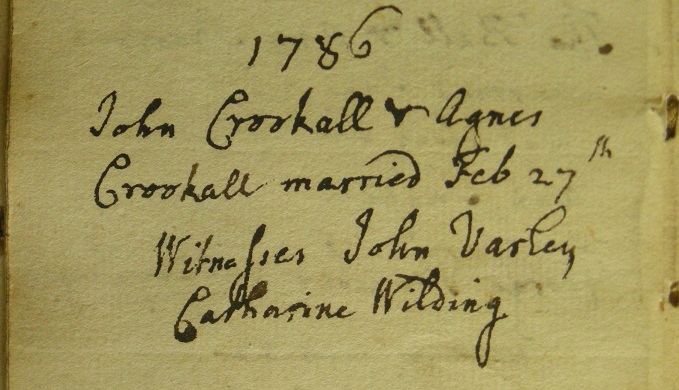 1786
John Crookall & Agnes
Crookall married Feb 27th
Witnesses John Varley
Catharine Wilding